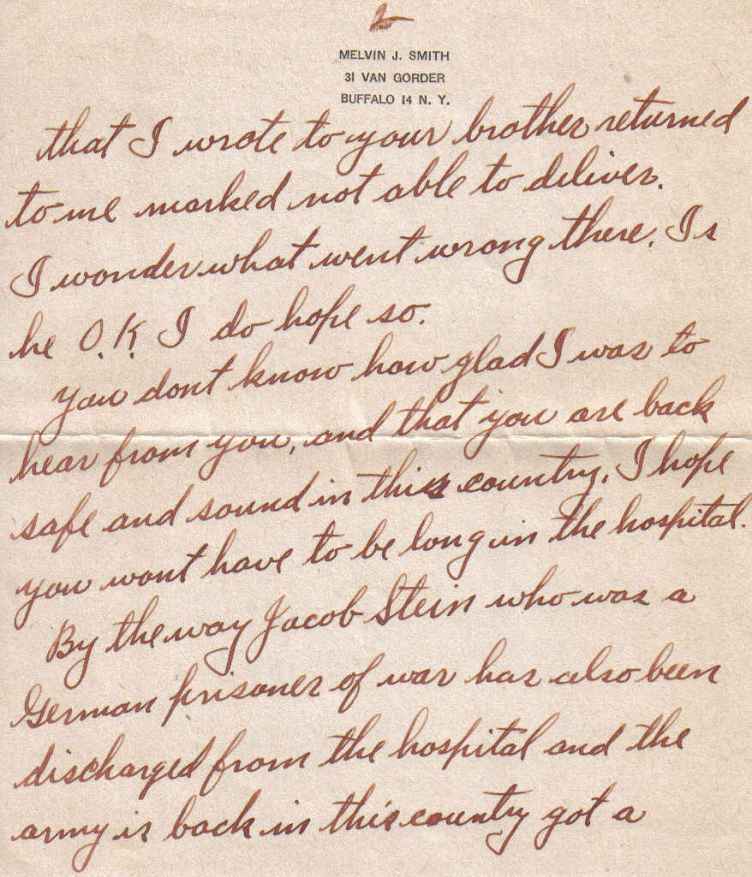 2
MELVIN J. SMITH
31 VAN GORDER
BUFFALO 14 N. Y.
that I wrote to your brother returned
to me marked not able to deliver.
I wonder what went wrong there. Is
he O.K. I do hope so.
You dont know how glad I was to
hear from you, and that you are back
safe and sound in this country. I hope
you wont have to be long in the hospital.
By the way Jacob Stein who was a
German prisoner of war has also been
discharged from the hospital and the
army is back in this country got a